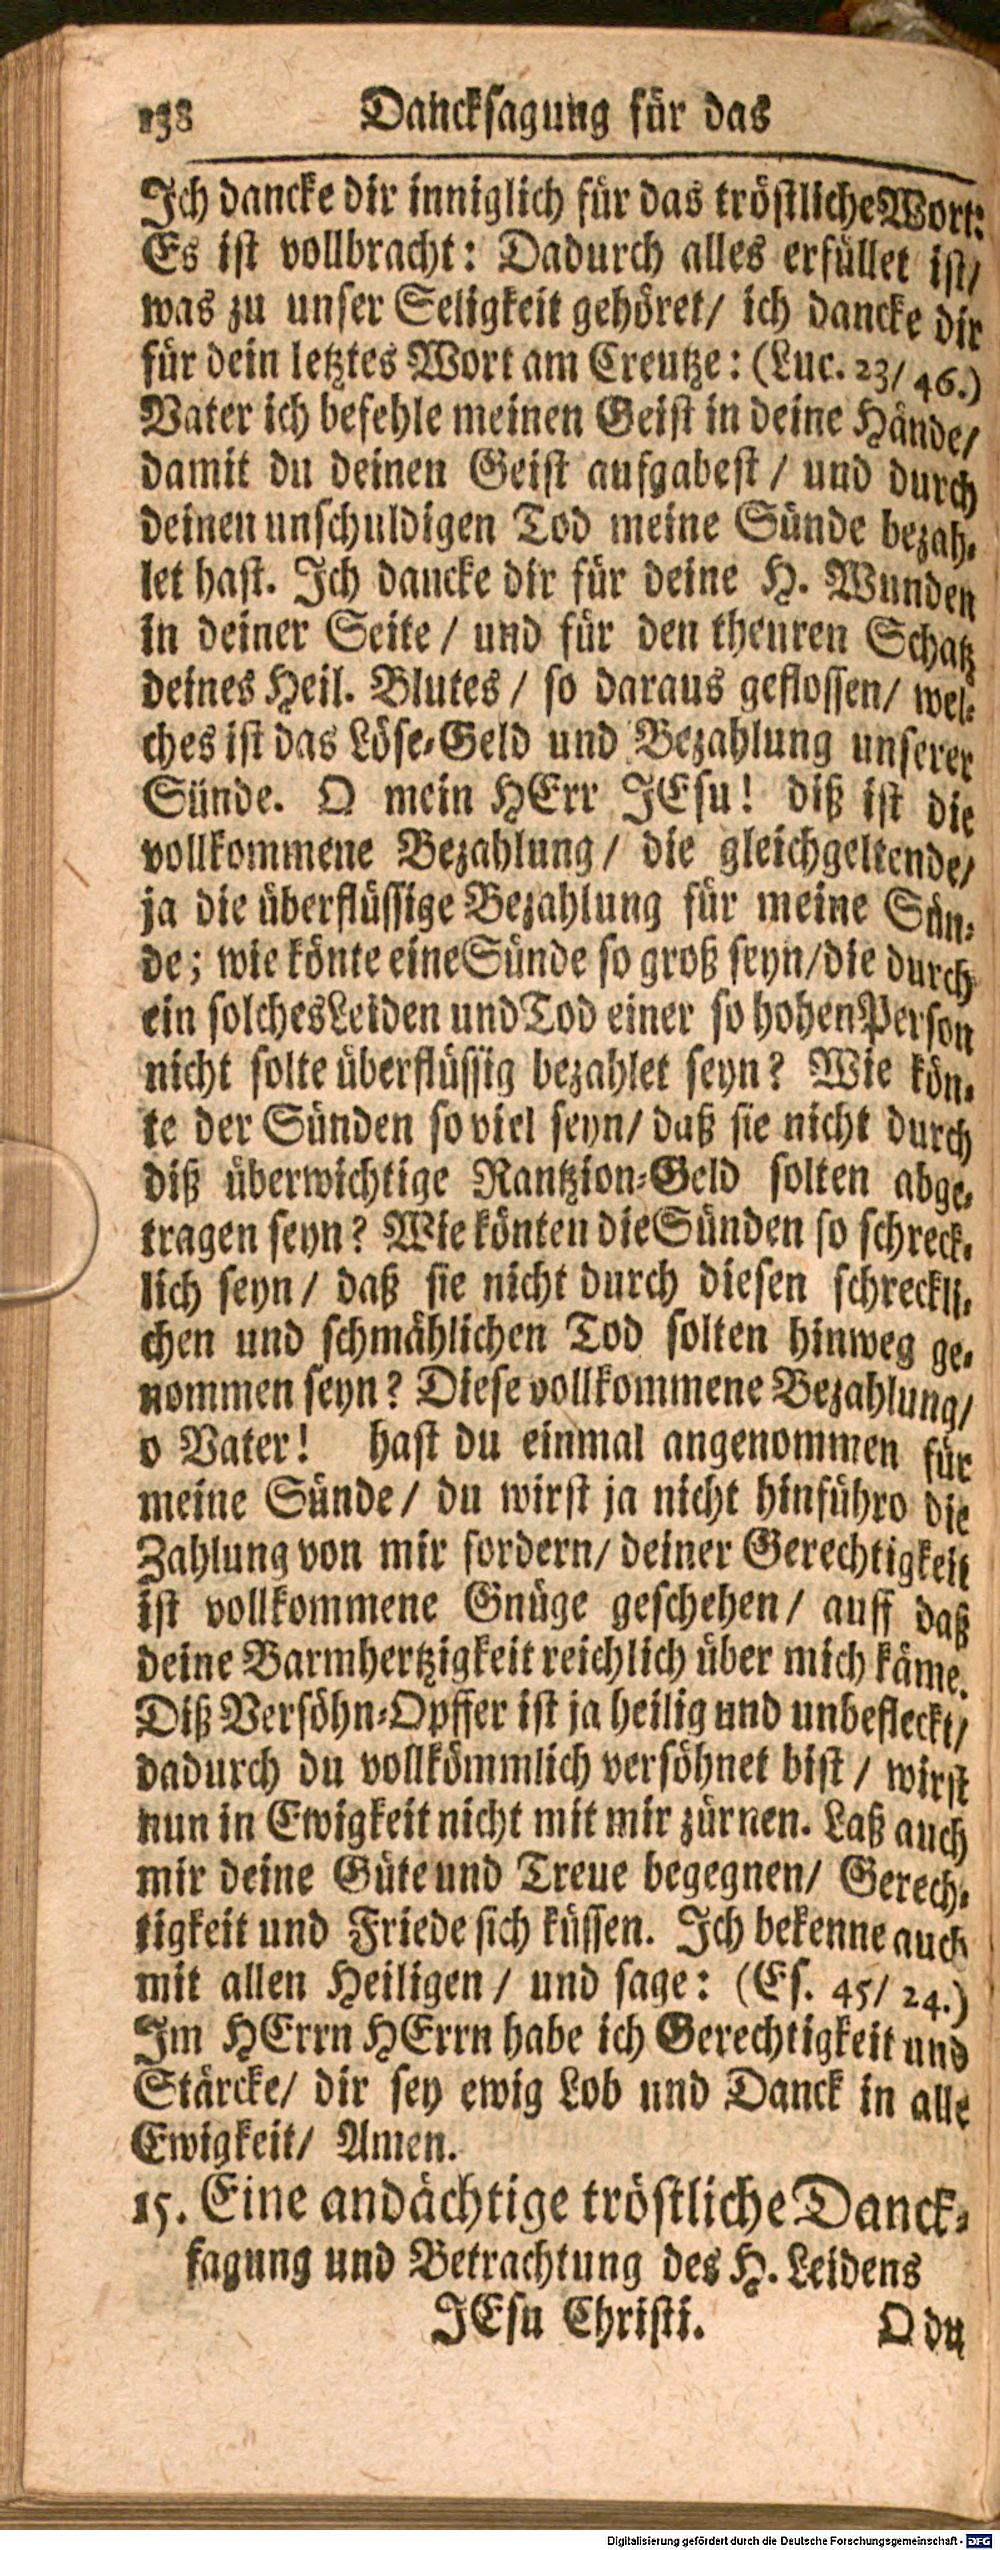 138 Dancksagung für das
Ich dancke dir inniglich für das tröstliche Wort:
Es ist vollbracht: Dadurch alles erfüllet ist/
was zu unser Seligkeit gehöret/ ich dancke dir
für dein letztes Wort am Creutze: (Luc. 23/ 46.)
Vater ich befehle meinen Geist in deine Hände/
damit du deinen Geist aufgabest / und durch
deinen unschuldigen Tod meine Sünde bezah-
let hast. Ich dancke dir für deine H. Wunden
in deiner Seite / und für den theuren Schatz
deines Heil. Blutes / so daraus geflossen/ wel-
ches ist das Löse-Geld und Bezahlung unserer
Sünde. O mein HErr JEsu! diß ist die
vollkommene Bezahlung / die gleichgeltende/
ja die überflüssige Bezahlung für meine Sün-
de; wie könte eine Sünde so groß seyn/ die durch
ein solches Leiden und Tod einer so hohen Person
nicht solte überflüssig bezahlet seyn? Wie kön-
te der Sünden so viel seyn/ daß sie nicht durch
diß überwichtige Rantzion-Geld solten abge-
tragen seyn? Wie könten die Sünden so schreck-
lich seyn / daß sie nicht durch diesen schreckli-
chen und schmählichen Tod solten hinweg ge-
nommen seyn? Diese vollkommene Bezahlung/
o Vater! hast du einmal angenommen für
meine Sünde / du wirst ja nicht hinführo die
Zahlung von mir fordern/ deiner Gerechtigkeit
ist vollkommene Gnüge geschehen / auff daß
deine Barmhertzigkeit reichlich über mich käme.
Diß Versöhn-Opffer ist ja heilig und unbefleckt/
dadurch du vollkömmlich versöhnet bist / wirst
nun in Ewigkeit nicht mit mir zürnen. Laß auch
mir deine Güte und Treue begegnen/ Gerech-
tigkeit und Friede sich küssen. Ich bekenne auch
mit allen Heiligen / und sage: (Es. 45/ 24.)
Im HErrn HErrn habe ich Gerechtigkeit und
Stärcke/ dir sey ewig Lob und Danck in alle
Ewigkeit/ Amen.
15. Eine andächtige tröstliche Danck-
sagung und Betrachtung des H. Leidens
JEsu Christi. O du
Digitalisierung gefördert durch die Deutsche Forschungsgemeinschaft - DFG